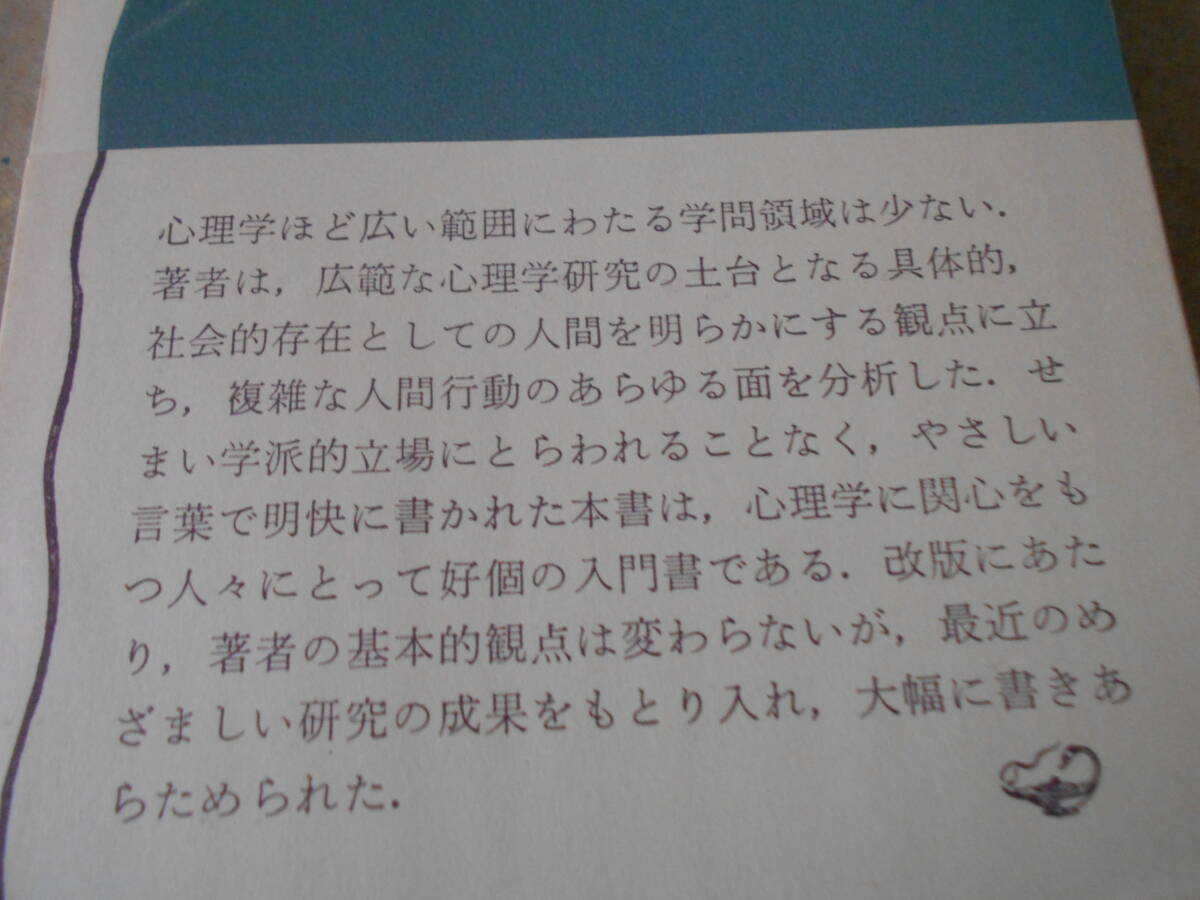 心理学ほど広い範囲にわたる学問領域は少ない.
著者は, 広範な心理学研究の土台となる具体的,
社会的存在としての人間を明らかにする観点に立
ち, 複雑な人間行動のあらゆる面を分析した. せ
まい学派的立場にとらわれることなく, やさしい
言葉で明快に書かれた本書は, 心理学に関心をも
つ人々にとって好個の入門書である. 改版にあた
り, 著者の基本的観点は変わらないが, 最近のめ
ざましい研究の成果をもとり入れ, 大幅に書きあ
らためられた.